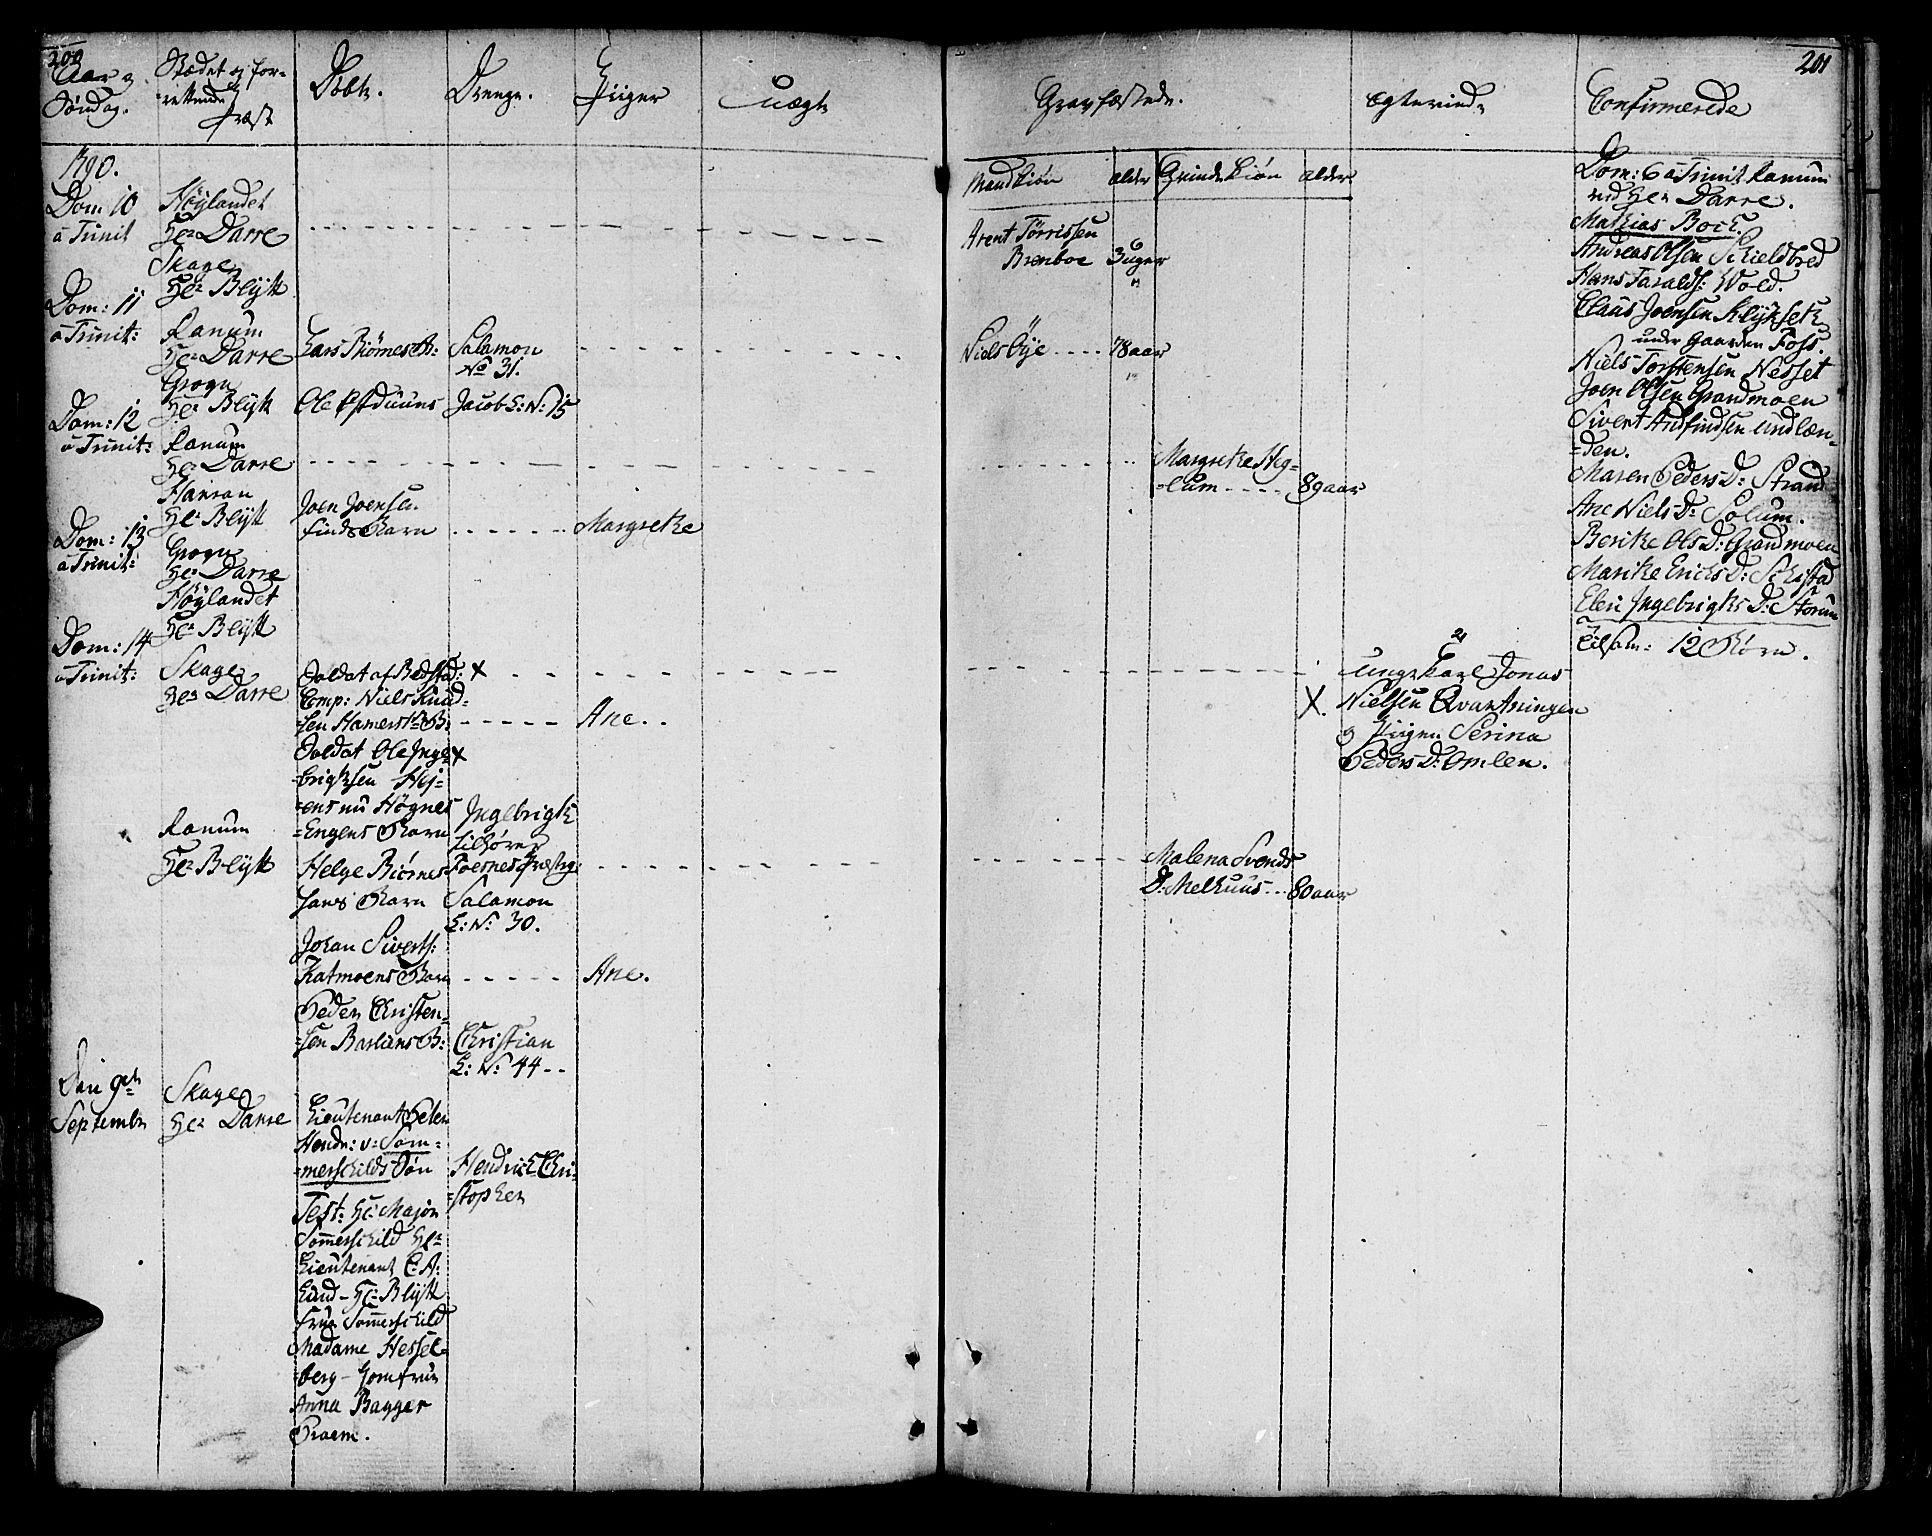 200
Aar og
Søndag.
Stædet og for-
rettende
Præst
Døbte.
Drenge.
Piiger
Uægte
1790.
Dom: 10
a Trinit
Høylandet
Hr Darre
Skage
Hr Blytt
Dom: 11
a Trinit:
Ranum
Hr Darre
Lars Biørnes B:
Salamon
No 31.
Grogn
Hr Blytt
Ole Østduuns
Jacob L: N: 15
Dom: 12
a Trinit:
Ranum
Hr Darre
Harran
Hr Blytt
Joen Joensen
Finds Barn
Margrethe
Dom: 13
a Trinit:
Grogn
Hr Darre
Høylandet
Hr Blytt
Dom: 14
a Trinit:
Skage
Hr Darre
Soldat af Bedstad: X
Comp: Niels Knud-
sen Hamerst: B:
Ane..
Soldat Ole Inge X
-brigtsen Hej-
-ens nu Høgnes
-Engens Barn
Ingebrigt
tilhører
Foesnes Præstg:
Ranum
Hr Blytt
Helge Biørnes-
Jans Barn
Salamon
L: N: 30.
Johan Siverts:
Katmoens Barn
Ane.
Peder Christen-
-sen Barliens B:
Christian
L: N: 44
Den 9de
Septembr
Skage
Hr Darre
Lieutenant Peter
Hendr: v: Som-
-merschilds Søn
Hendrich Chri-
-stopher
Test: Hr Major
Somerschild Hr
Lieutenant C: A:
Lund - Hr Blytt
Frue Somerschild
Madame Hessel-
-berg - Jomfrue
Anna Bagger
Praem.
201
Gravfæstede.
Egteviede
Confirmerede
Mandkiøn
alder
Qvindekiøn
alder
Arent Tørrissen
Brenboe
3 uger
Niels Øye .... 78 aar
Margrethe Heg-
-lum .... 89 aar
2
Ungekarl Jonas
X. Nielsen Qvartningen
og Piigen Serina
Peders D: Omlen.
Malena Svends
D: Melhuus... 80 aar
Dom: 6 a Trinit Ranum
ved Hr Darre.
Mathias Bock
Andreas Olsen Schieldbred
Hans Haralds: Wold.
Claus Joensen Klykseth
under Gaarden Foss.
Niels Torstensen Nesset
Joen Olsen Grandmoen
Sivert Andfindsen Undlæn-
-den.
Maren Peders D: Strand
Ane Niels D: Solum.
Berithe Ols D: Grandmoen
Marithe Erichs D: Schistad
Elen Ingebrigts D: Storum
Tilsam: 12 Børn.